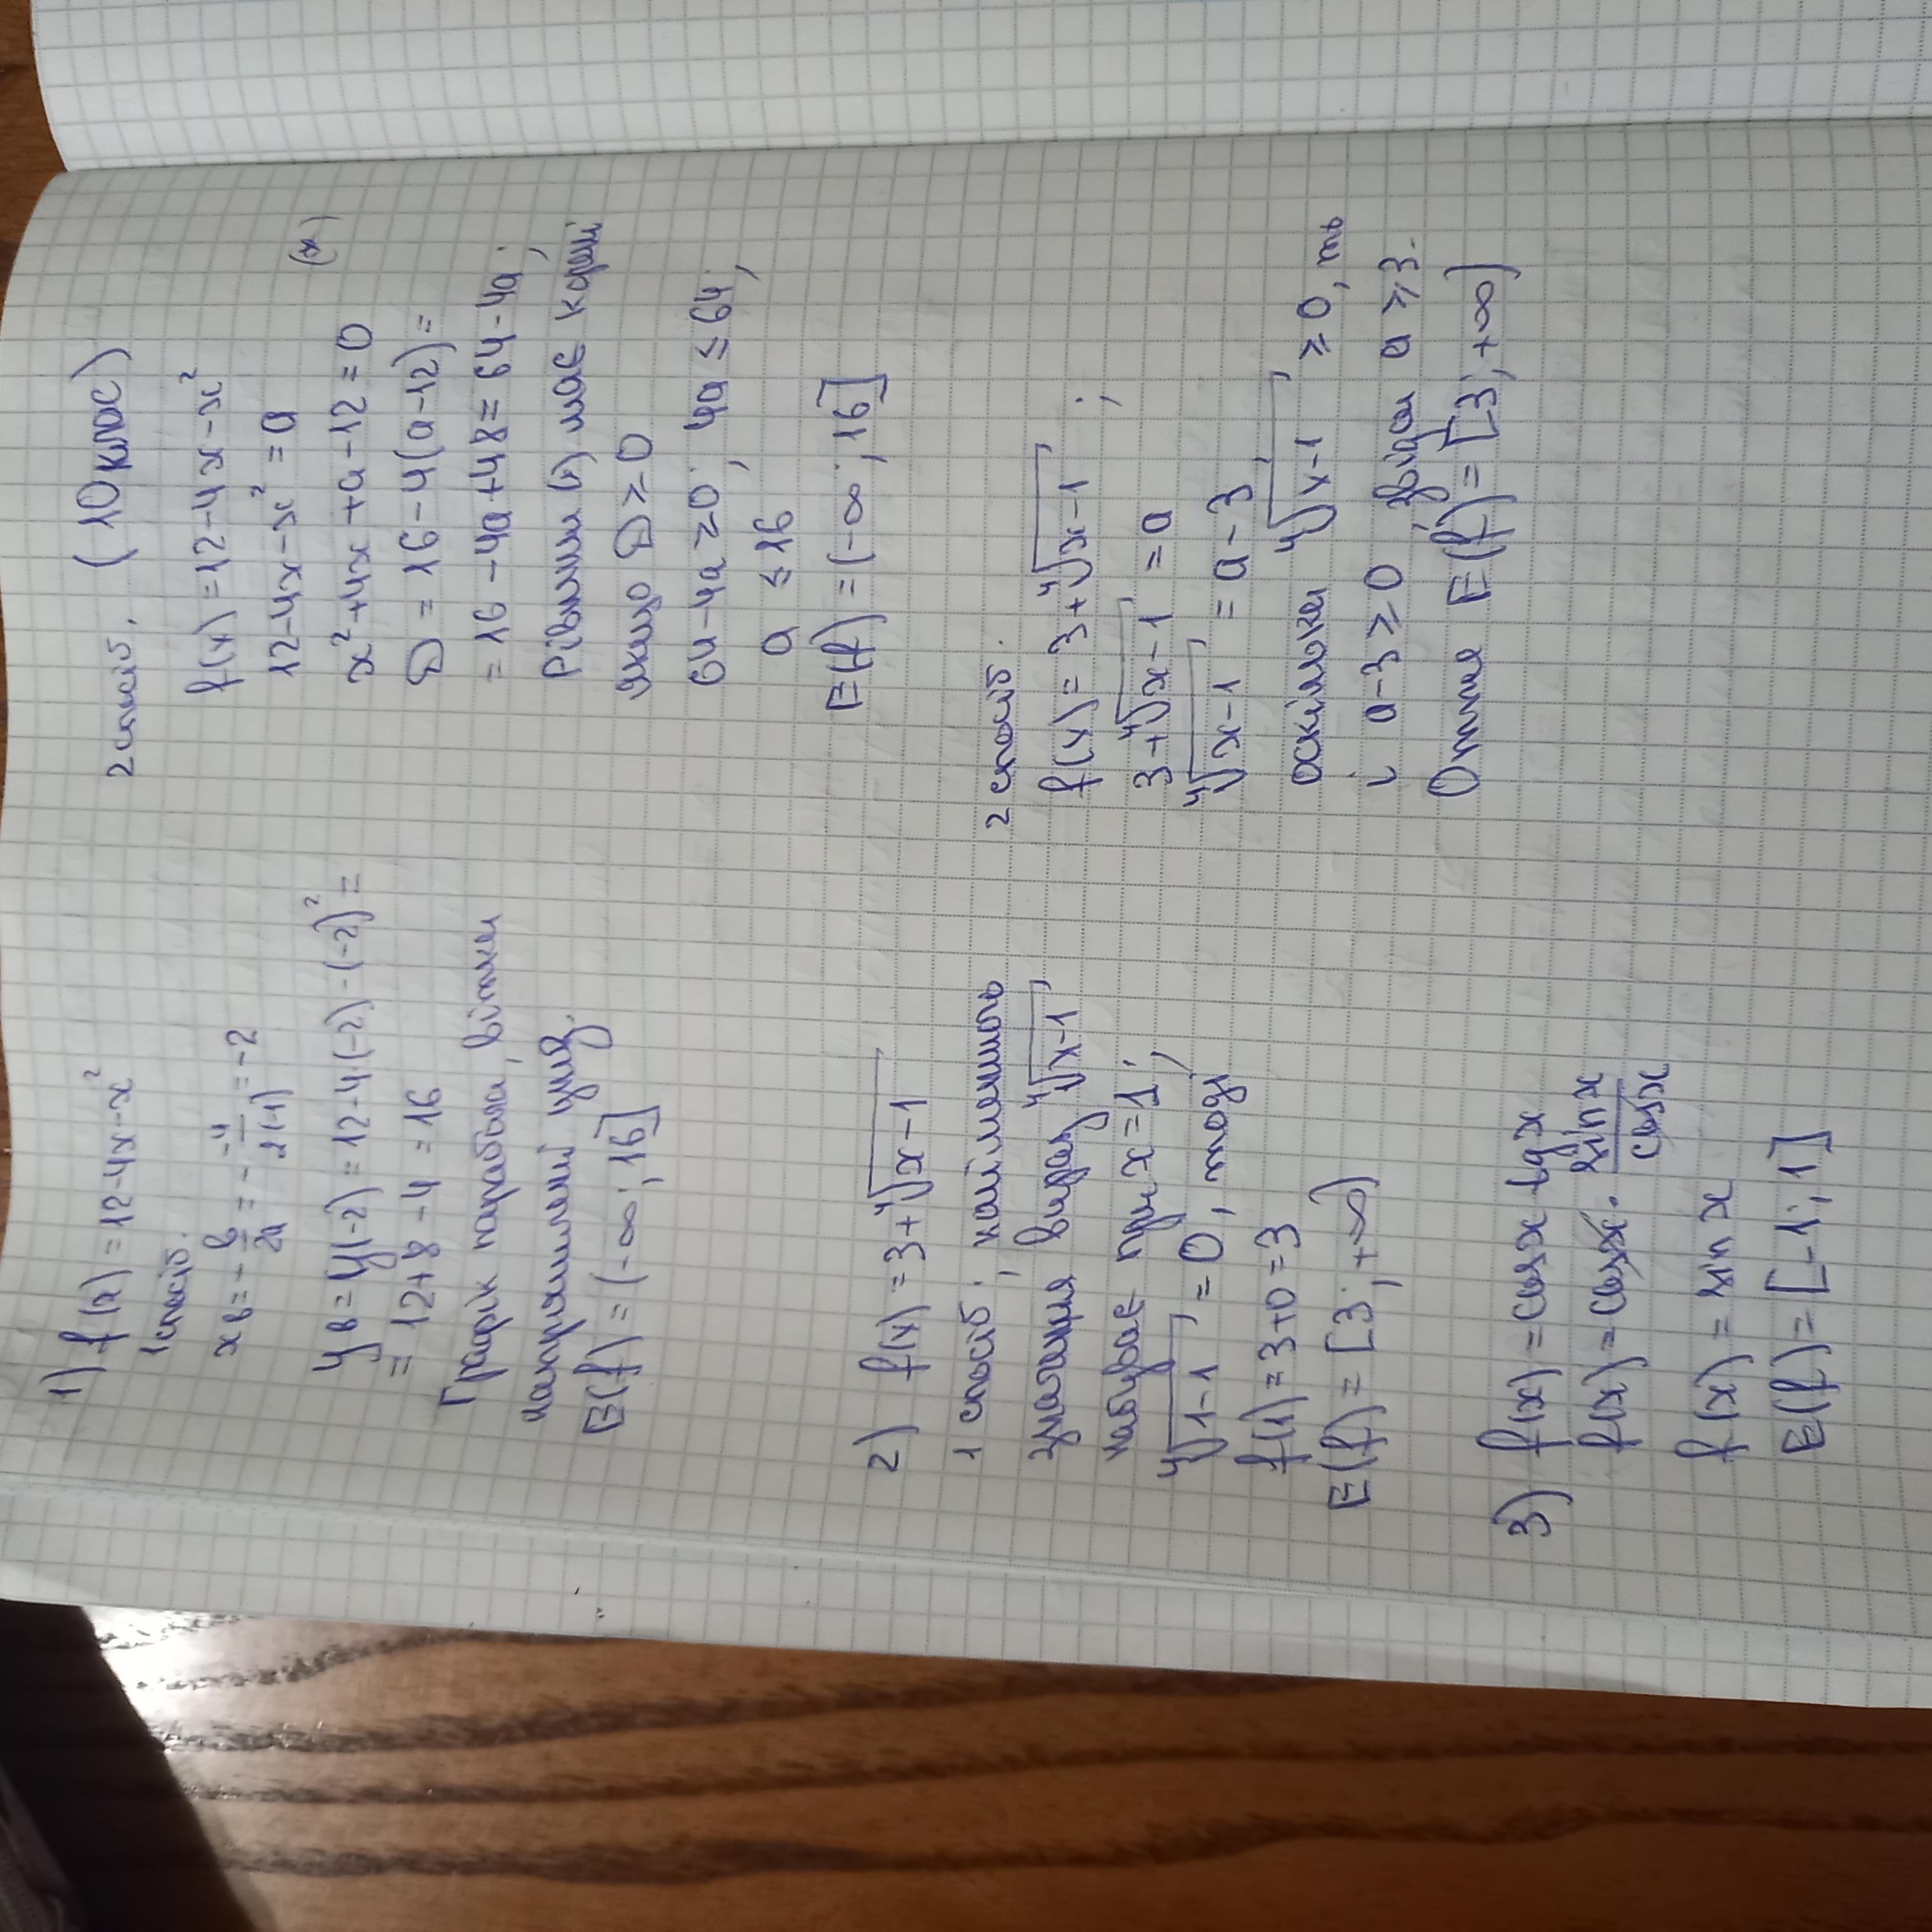 1) f(x) = 12-4x-x²
1 спосіб.
xв = - в/2a = - -4/2(-1) = -2
yв = y(-2) = 12-4·(-2)-(-2)² =
= 12+8-4 = 16
Графік парабола, вітки
напрямлені униз.
E(f) = (-∞; 16]
2 спосіб. (10 клас)
f(x) = 12-4x-x²
12-4x-x² = a
x²+4x+a-12=0 (*)
D = 16-4(a-12) =
= 16-4a+48 = 64-4a;
Рівняння (*) має корені
якщо D ≥ 0
64-4a ≥ 0; 4a ≤ 64;
a ≤ 16
E(f) = (-∞; 16]
2) f(x) = 3+⁴√x-1
1 спосіб; найменшого
значення вираз ⁴√x-1
набуває при x=1;
⁴√1-1 = 0, тоді
f(1) = 3+0 = 3
E(f) = [3; +∞)
2 спосіб.
f(x) = 3+⁴√x-1 ;
3+⁴√x-1 = a
⁴√x-1 = a-3
оскільки ⁴√x-1 ≥ 0, то
і a-3 ≥ 0 звідси a ≥ 3.
Отже E(f) = [3; +∞)
3) f(x) = cosx tgx
f(x) = cosx · sinx/cosx
f(x) = sin x
E(f) = [-1; 1]